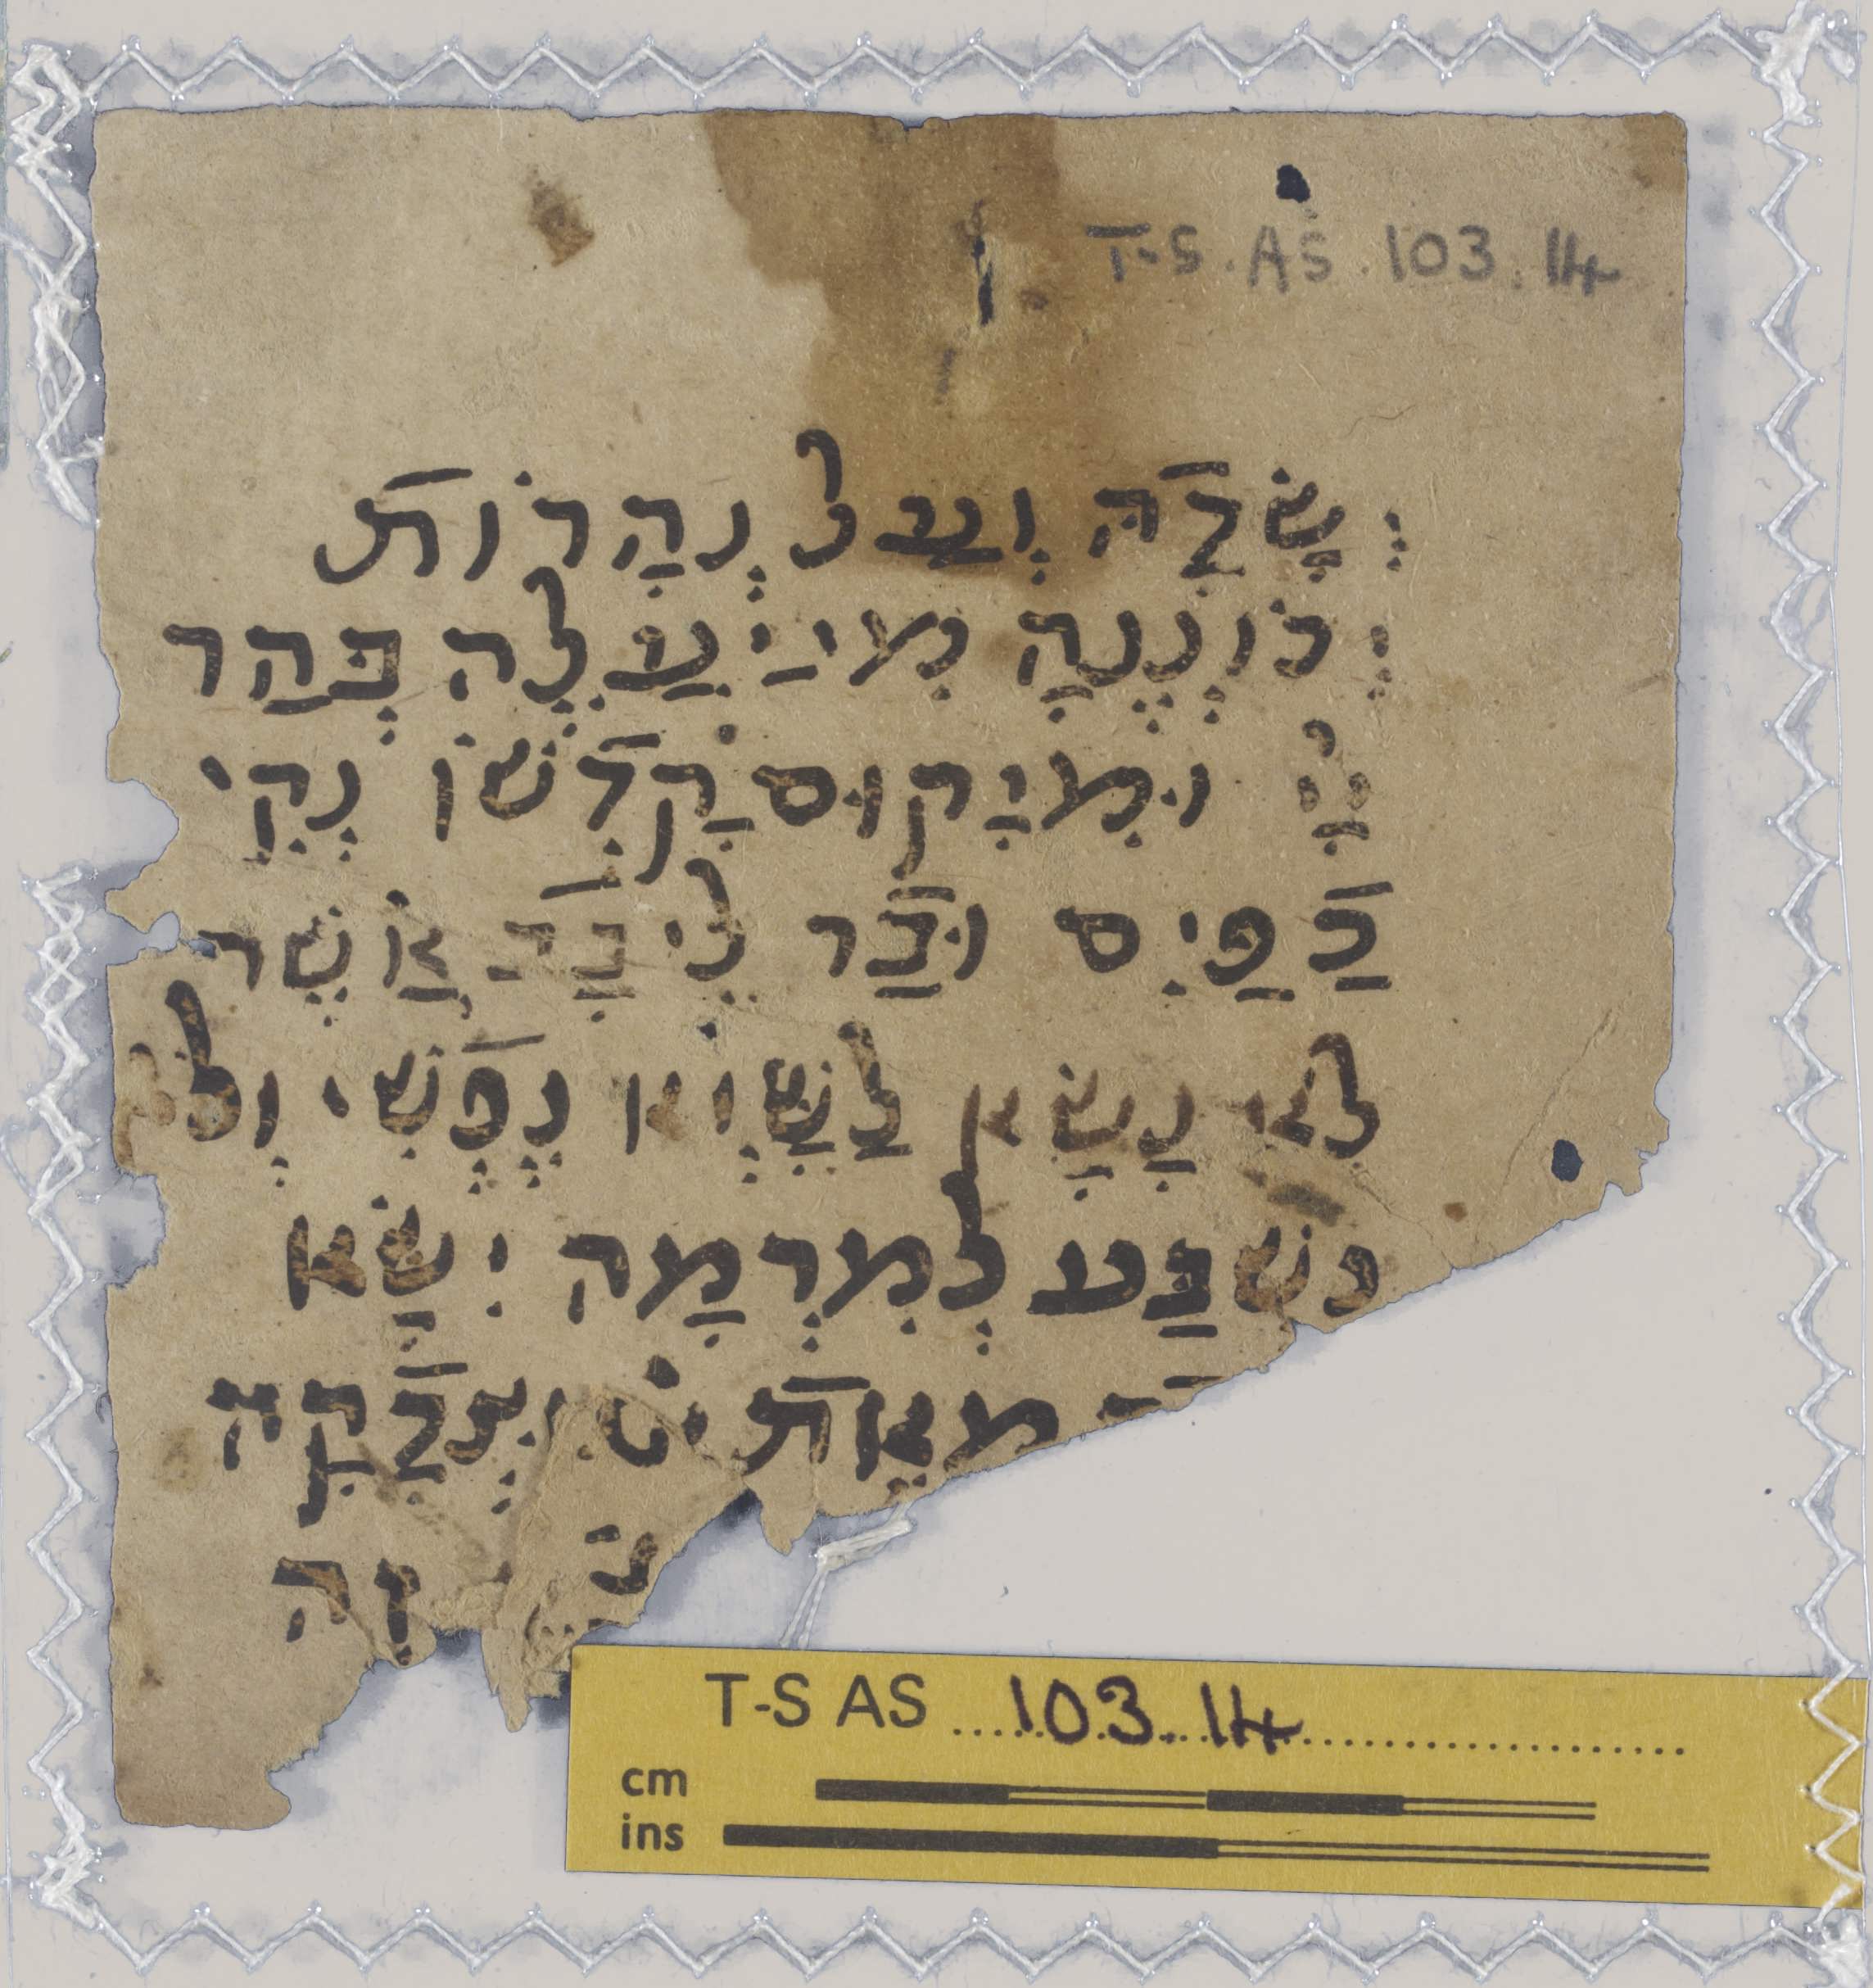 T-S.AS.103.14
יְשָׂדָהּ וְעַל נְהַרוֹת
יְכוֹנְנֶהָ מִי יַעֲלֶה בְּהַר
יְיָ וּמִי יַקוּם קָדְשׁוֹ נְקִי
כַפַיִם וּבַר לֵיבָב אֲשֶׁר
לֹא נָשָׂא לַשָּׁוְא נֶפְשִׁי וְלֹא
נִשְׁבַּע לְמִרְמַה יִשָּׂא
מֵאֵת וּצְדָקָה
זֶה
T-S AS 103.14
cm
ins